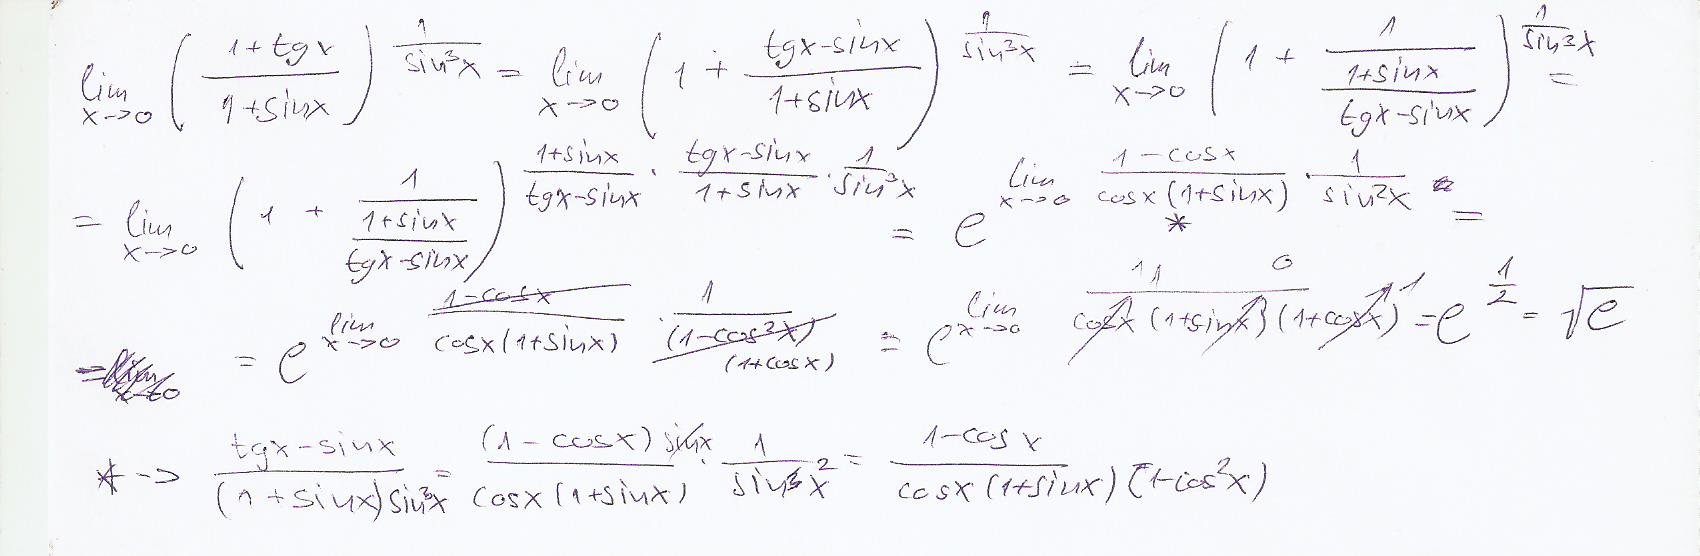 lim x→0 ( (1+tgx)/(1+sinx) )^(1/sin³x) = lim x→0 ( 1 + (tgx-sinx)/(1+sinx) )^(1/sin³x) = lim x→0 ( 1 + 1/((1+sinx)/(tgx-sinx)) )^(1/sin³x) =
= lim x→0 ( 1 + 1/((1+sinx)/(tgx-sinx)) )^((1+sinx)/(tgx-sinx) · (tgx-sinx)/(1+sinx) · 1/sin³x) = e^(lim x→0 (1-cosx)/(cosx(1+sinx)) · 1/sin²x) * =
= e^(lim x→0 (1-cosx)/(cosx(1+sinx)) · 1/((1-cos²x) (1+cosx))) = e^(lim x→0 1/(cosx(1+sinx)(1+cosx))) = e^(1/2) = √e
* -> (tgx-sinx)/((1+sinx)sin³x) = ((1-cosx)sinx)/(cosx(1+sinx)) · 1/sin³x ² = (1-cosx)/(cosx(1+sinx)(1-cos²x))